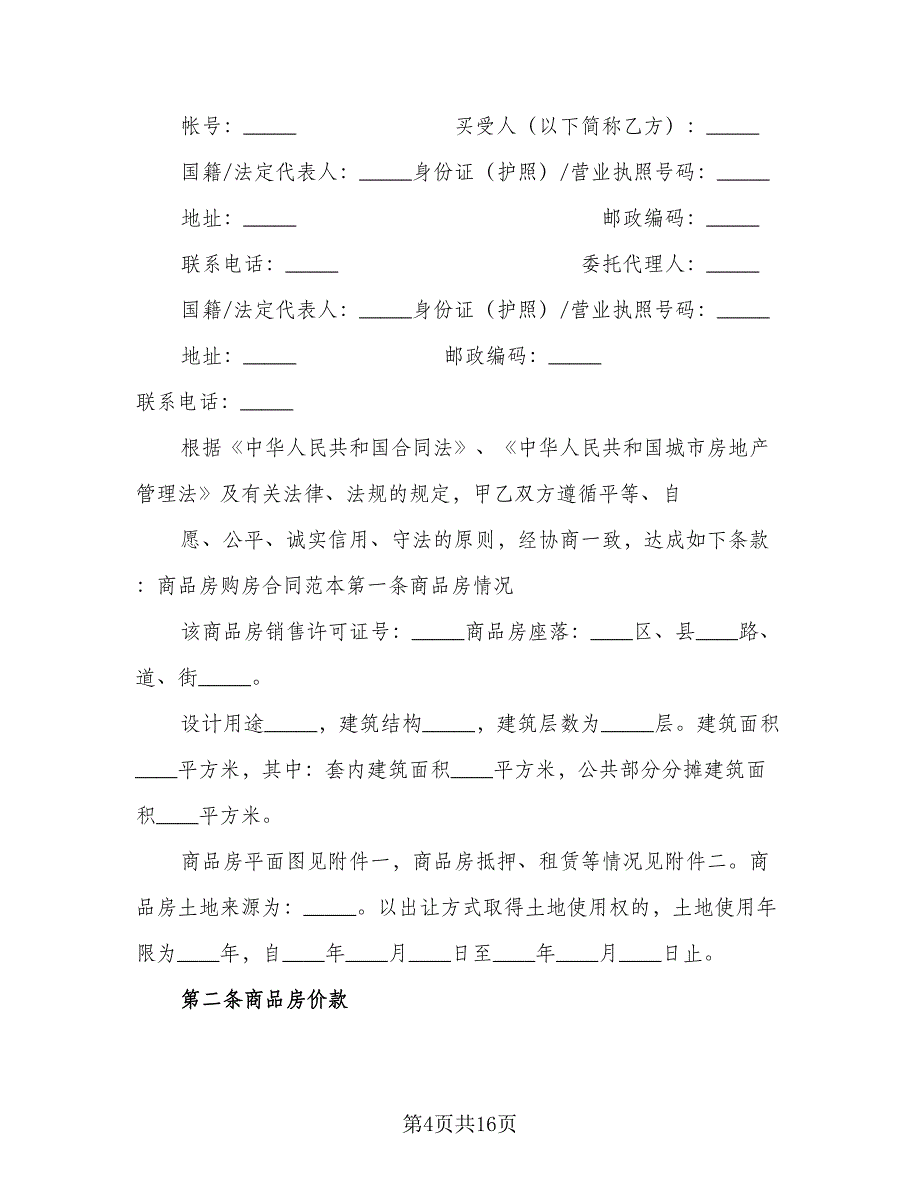 帐号：_____ 买受人（以下简称乙方）：_____
国籍/法定代表人：_____身份证（护照）/营业执照号码：_____
地址：_____ 邮政编码：_____
联系电话：_____ 委托代理人：_____
国籍/法定代表人：_____身份证（护照）/营业执照号码：_____
地址：_____ 邮政编码：_____
联系电话：_____
根据《中华人民共和国合同法》、《中华人民共和国城市房地产
管理法》及有关法律、法规的规定，甲乙双方遵循平等、自
愿、公平、诚实信用、守法的原则，经协商一致，达成如下条款
：商品房购房合同范本第一条商品房情况
该商品房销售许可证号：_____商品房座落：____区、县____路、
道、街_____。
设计用途_____，建筑结构_____，建筑层数为_____层。建筑面积
____平方米，其中：套内建筑面积____平方米，公共部分分摊建筑面
积____平方米。
商品房平面图见附件一，商品房抵押、租赁等情况见附件二。商
品房土地来源为：_____。以出让方式取得土地使用权的，土地使用年
限为____年，自____年____月____日至____年____月____日止。
第二条商品房价款
第4页共16页